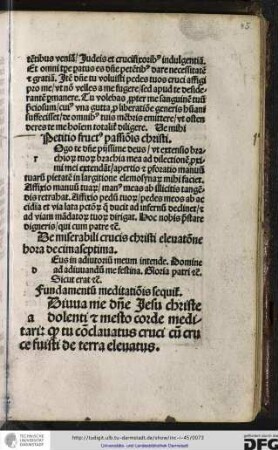 45
tētibus veniā/ Judeis et crucifixoribꝰ indulgentiā.
Et omni tpe patus es dñe petētibꝰ dare necessitatē
⁊ gratiā. Itē dñe tu voluisti pedes tuos cruci affigi
pro me/ vt nō velles a me fugere/ sed apud te deside-
rantē pmanere. Tu volebas ꝓpter me sanguinē tuū
p̄ciosum/ cuiꝰ vna gutta ꝓ liberatiōe generis hūani
suffecisset/ de omnibꝰ tuis mēbris emittere/ vt osten
deres te me hoīem totalit̄ diligere. De mihi
Petitio fructꝰ passiōis christi.
r Ogo te dñe pijssime deus/ vt extensio bra-
chioꝝ tuoꝝ brachia mea ad dilectionē pxi
mi mei extendāt/ apertio ⁊ pforatio manuū
tuarū pietatē in largitione elemosynaꝝ mihi suciet.
Affixio manuū tuaꝝ/ manꝰ meas ab illicitis tangē-
dis retrabat. Affixio pedū tuoꝝ/ pedes meos ab ac
cidia et via lata p̄ctoꝝ ꝙ ducit ad infernū declinet/ ⁊
ad viam mādatoꝝ tuoꝝ dirigat. Hoc nobis p̄stare
digneris/ qui cum patre ⁊c̄.
De miserabili crucis christi eleuatōne
hora decimaseptima.
d Eus in adiutoriū meum intende. Domine
ad adiuuandū me festina. Gloria patri ⁊c̄.
Sicut erat ⁊c̄.
Fundamentū meditatiōis sequit̄.
a Diuua me dñe Jesu christe
dolenti ⁊ mesto corde medi
tari: ꝙ tu cōclauatus cruci cū cru
ce fuisti de terra eleuatus.
http://tudigit.ulb.tu-darmstadt.de/show/inc-iv-45/0073
Universitäts- und Landesbibliothek Darmstadt
TECHNISCHE
UNIVERSITÄT
DARMSTADT
gefördert durch die
DFG